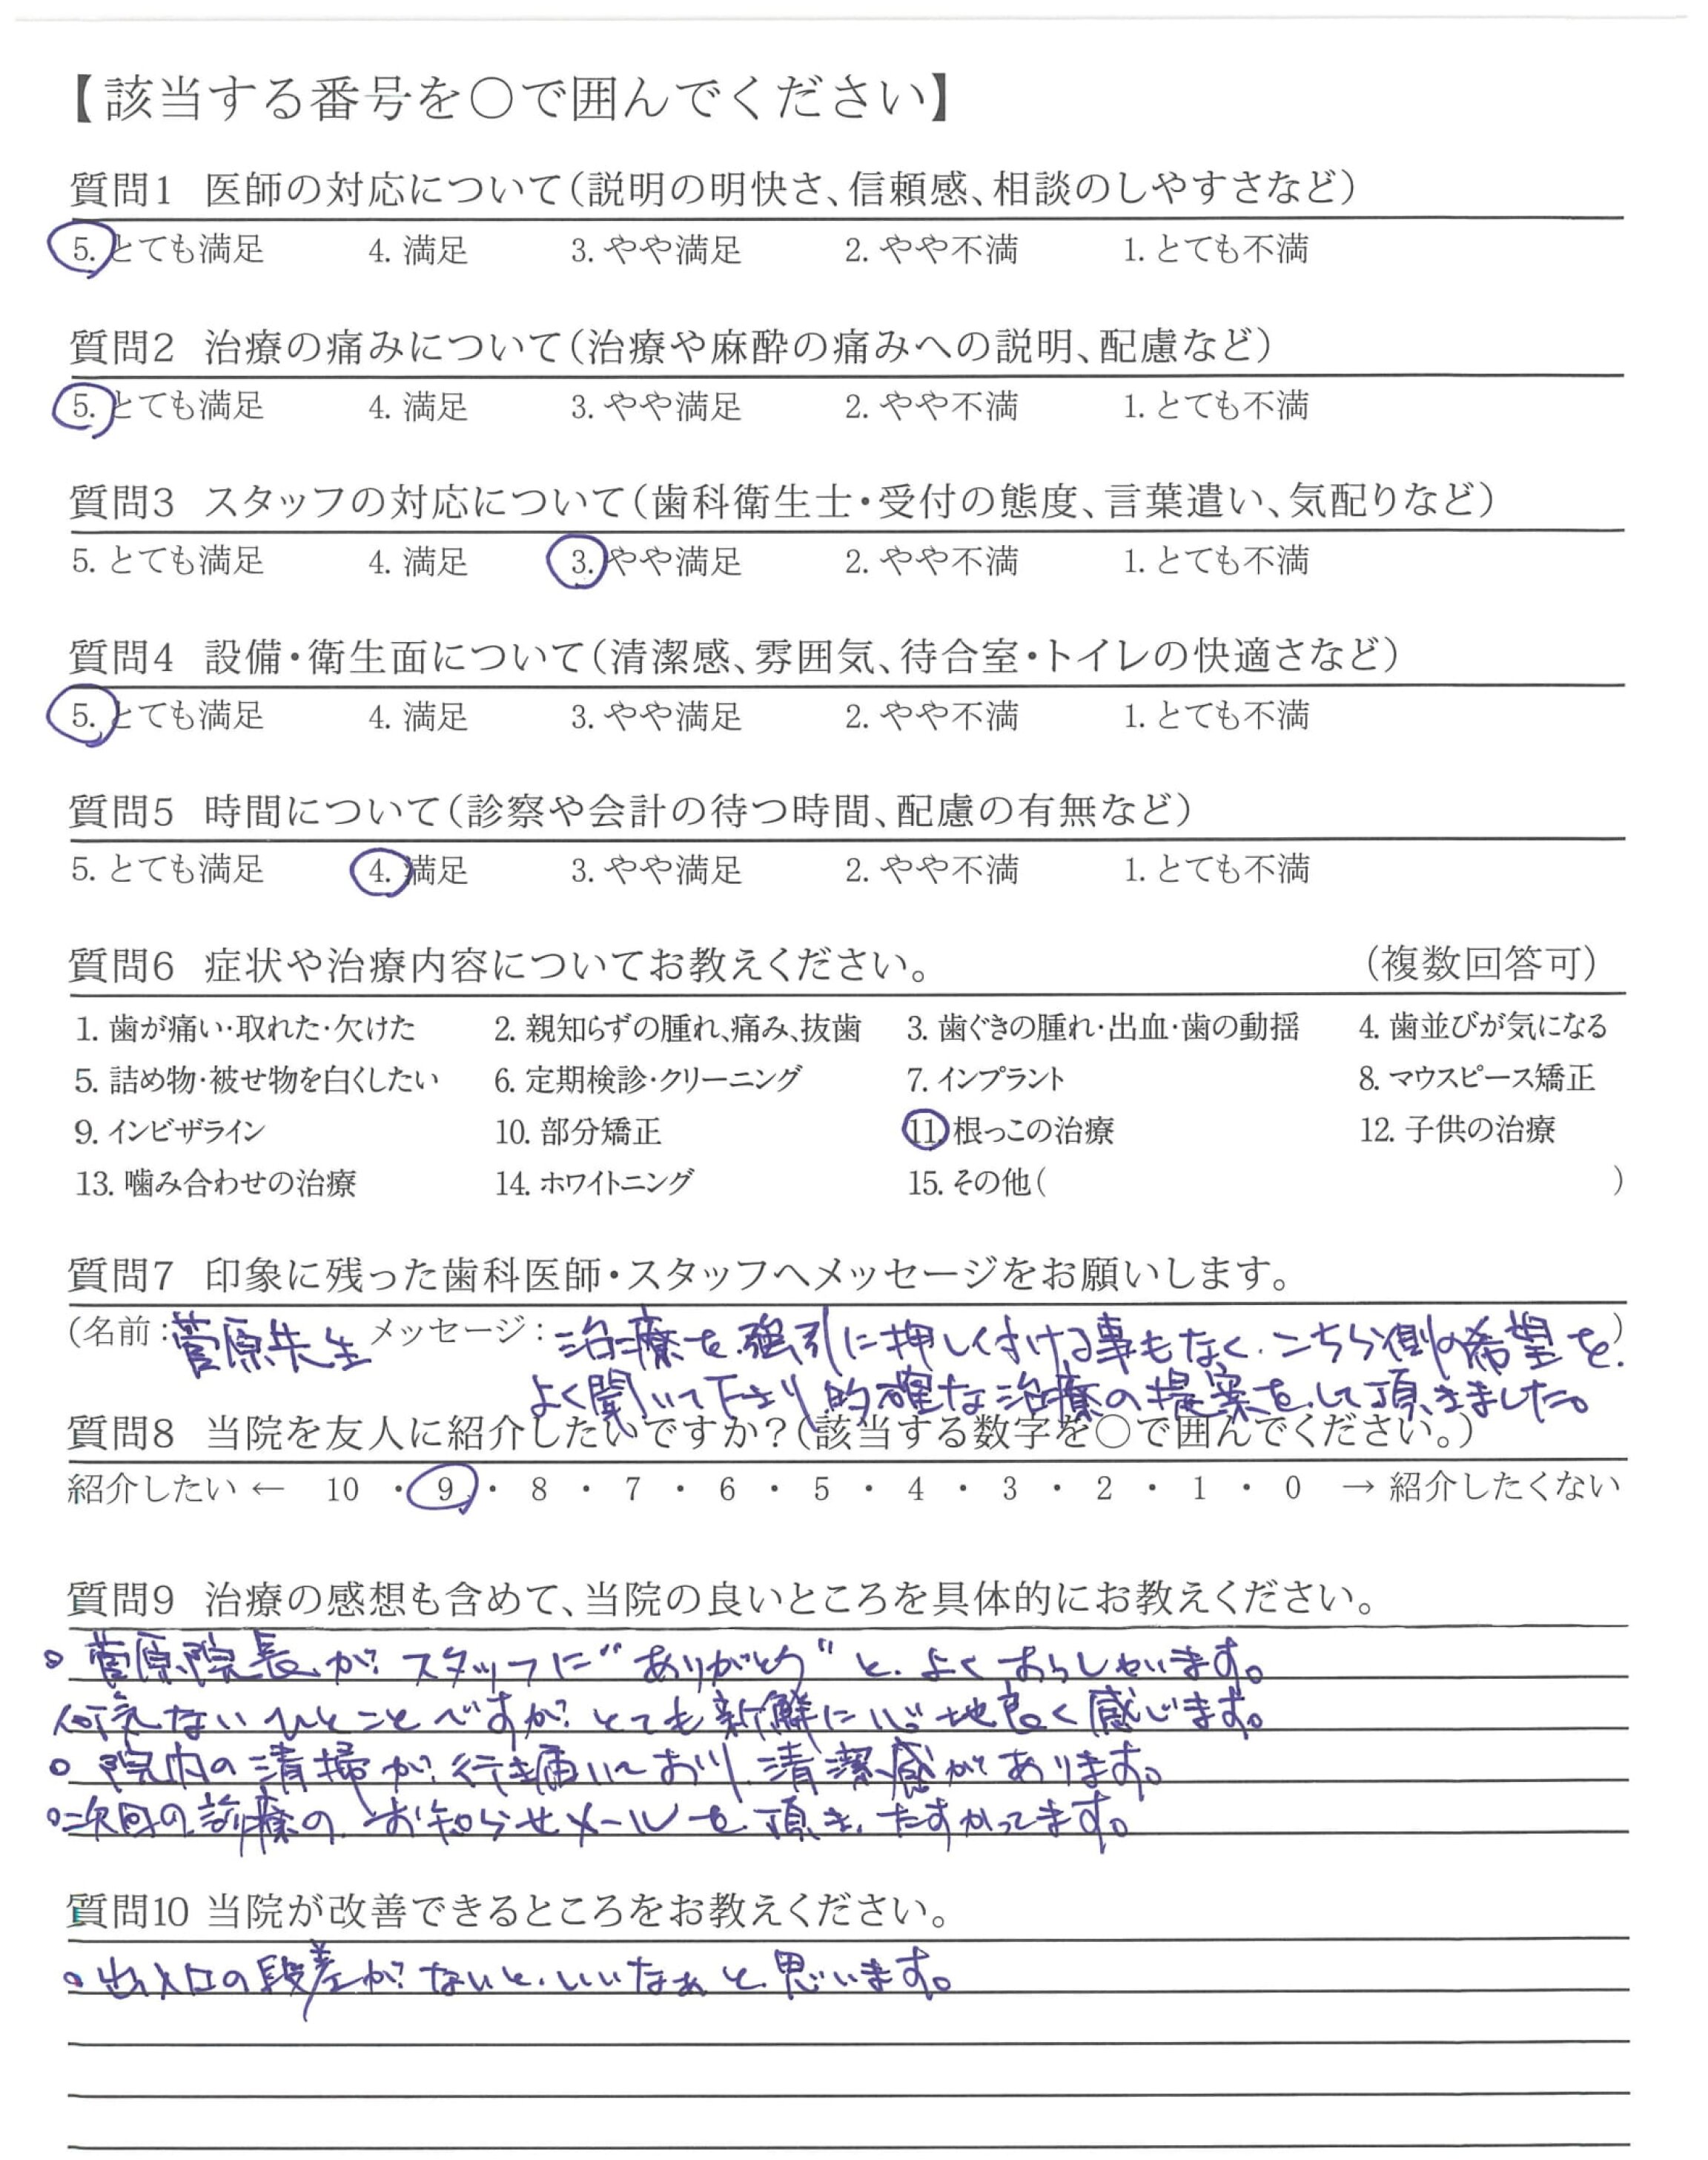 【該当する番号を○で囲んでください】
質問1 医師の対応について(説明の明快さ、信頼感、相談のしやすさなど)
5. とても満足 4. 満足 3. やや満足 2. やや不満 1. とても不満
質問2 治療の痛みについて(治療や麻酔の痛みへの説明、配慮など)
5. とても満足 4. 満足 3. やや満足 2. やや不満 1. とても不満
質問3 スタッフの対応について(歯科衛生士・受付の態度、言葉遣い、気配りなど)
5. とても満足 4. 満足 3. やや満足 2. やや不満 1. とても不満
質問4 設備・衛生面について(清潔感、雰囲気、待合室・トイレの快適さなど)
5. とても満足 4. 満足 3. やや満足 2. やや不満 1. とても不満
質問5 時間について(診察や会計の待つ時間、配慮の有無など)
5. とても満足 4. 満足 3. やや満足 2. やや不満 1. とても不満
質問6 症状や治療内容についてお教えください。 (複数回答可)
1. 歯が痛い・取れた・欠けた 2. 親知らずの腫れ、痛み、抜歯 3. 歯ぐきの腫れ・出血・歯の動揺 4. 歯並びが気になる
5. 詰め物・被せ物を白くしたい 6. 定期検診・クリーニング 7. インプラント 8. マウスピース矯正
9. インビザライン 10. 部分矯正 11. 根っこの治療 12. 子供の治療
13. 噛み合わせの治療 14. ホワイトニング 15. その他( )
質問7 印象に残った歯科医師・スタッフへメッセージをお願いします。
(名前:菅原先生 メッセージ:治療を強引に押し付ける事もなく、こちら側の希望を)
よく聞いて下さり的確な治療の提案をして頂きました。
質問8 当院を友人に紹介したいですか?(該当する数字を○で囲んでください。)
紹介したい ← 10 ・ 9 ・ 8 ・ 7 ・ 6 ・ 5 ・ 4 ・ 3 ・ 2 ・ 1 ・ 0 → 紹介したくない
質問9 治療の感想も含めて、当院の良いところを具体的にお教えください。
。菅原院長がスタッフに“ありがとう”と、よくおっしゃいます。
何気ないひとことですがとても新鮮に心地良く感じます。
。院内の清掃が行き届いており、清潔感があります。
。次回の診療の、お知らせメールを頂き、たすかってます。
質問10 当院が改善できるところをお教えください。
。出入口の段差がないと、いいなぁと思います。